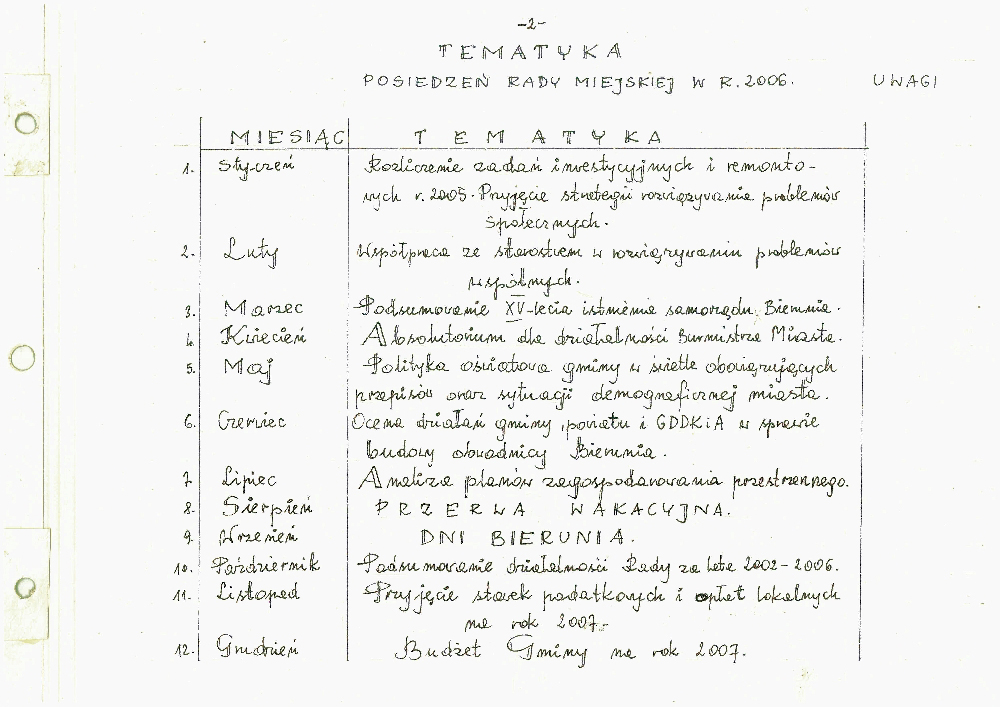 -2-
TEMATYKA
POSIEDZEŃ RADY MIEJSKIEJ W R. 2006. UWAGI
MIESIĄC TEMATYKA
1. Styczeń Rozliczenie zadań inwestycyjnych i remonto-
wych r. 2005. Przyjęcie strategii rozwiązywania problemów
społecznych.
2. Luty Współpraca ze starostwem w rozwiązywaniu problemów
wspólnych.
3. Marzec Podsumowanie XV-lecia istnienia samorządu Bierunia.
4. Kwiecień Absolutorium dla działalności Burmistrza Miasta.
5. Maj Polityka oświatowa gminy w świetle obowiązujących
przepisów oraz sytuacji demograficznej miasta.
6. Czerwiec Ocena działań gminy, powiatu i GDDKiA w sprawie
budowy obwodnicy Bierunia.
7. Lipiec Analiza planów zagospodarowania przestrzennego.
8. Sierpień PRZERWA WAKACYJNA.
9. Wrzesień DNI BIERUNIA.
10. Październik Podsumowanie działalności Rady za lata 2002-2006.
11. Listopad Przyjęcie stawek podatkowych i opłat lokalnych
na rok 2007.-
12. Grudzień Budżet Gminy na rok 2007.